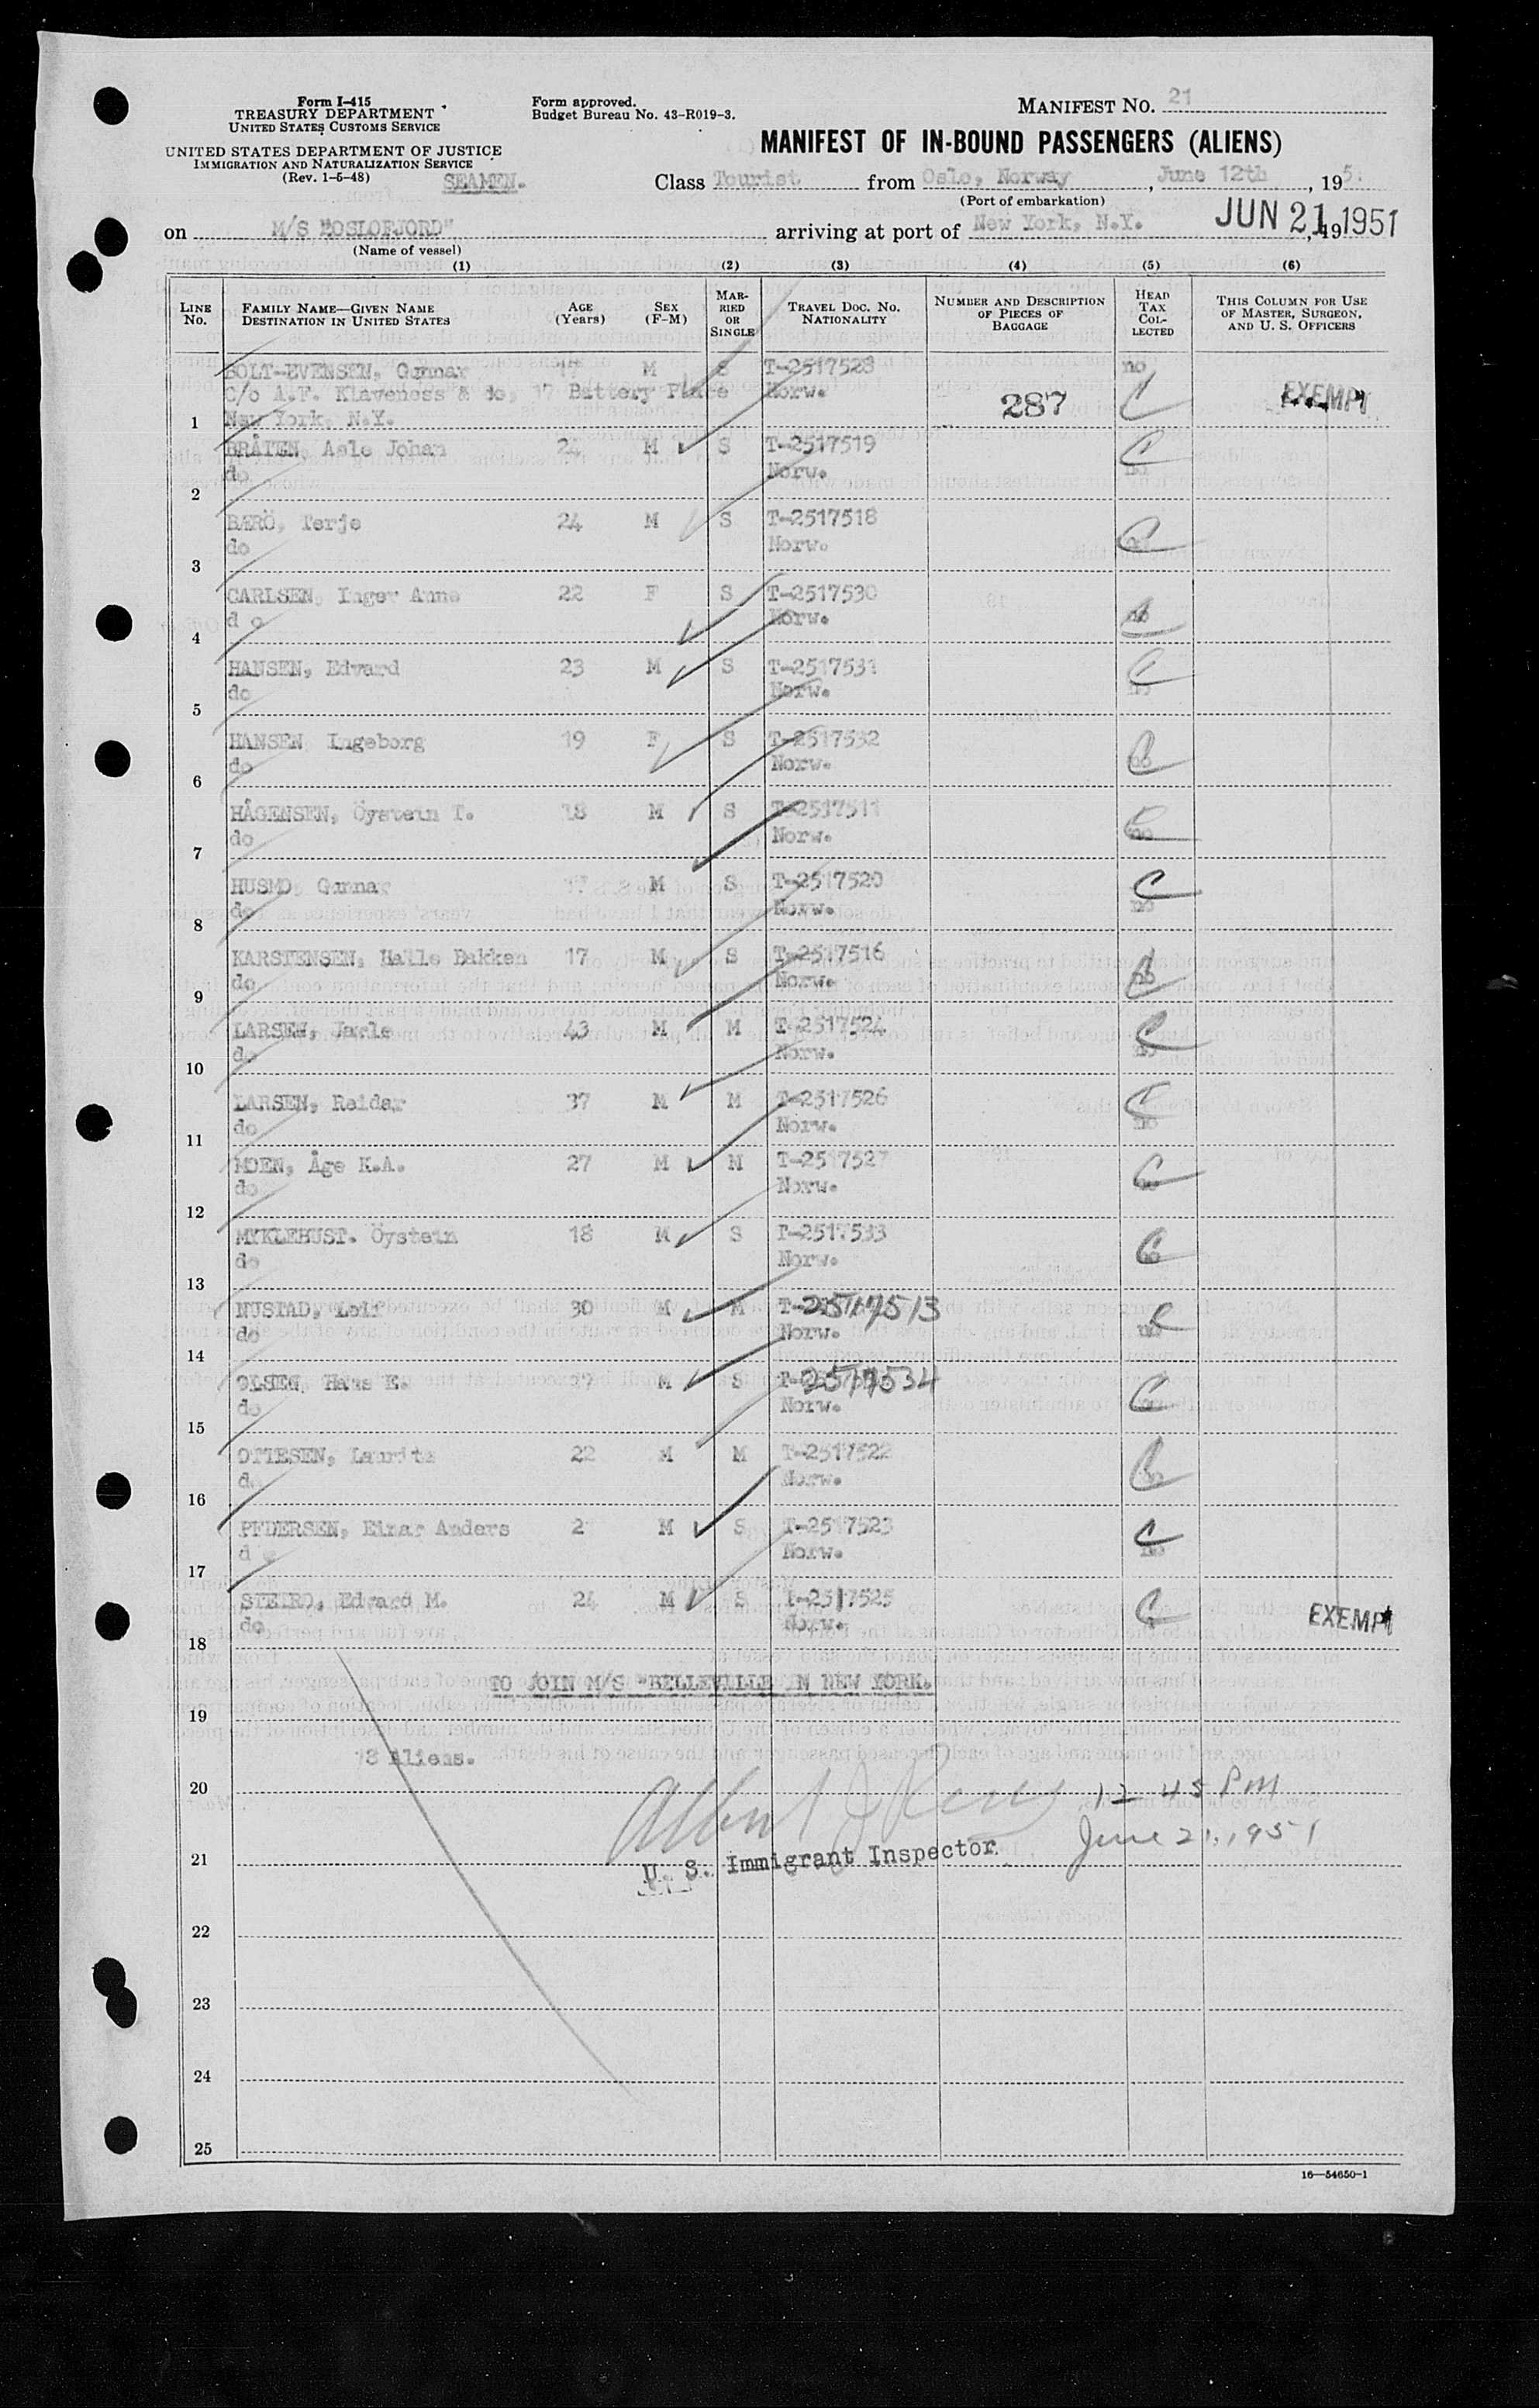 Form I-415
TREASURY DEPARTMENT
UNITED STATES CUSTOMS SERVICE
UNITED STATES DEPARTMENT OF JUSTICE
IMMIGRATION AND NATURALIZATION SERVICE
(Rev. 1-5-48)
SEAMEN.
Form approved.
Budget Bureau No. 43-R019-3.
MANIFEST NO. 21
MANIFEST OF IN-BOUND PASSENGERS (ALIENS)
Class Tourist from Oslo, Norway, June 12th, 195
(Port of embarkation)
on M/S "OSLOFJORD" arriving at port of New York, N.Y. JUN 21 1951, 19
(Name of vessel)
(1) (2) (3) (4) (5) (6)
LINE No. FAMILY NAME—GIVEN NAME DESTINATION IN UNITED STATES AGE (Years) SEX (F-M) MARRIED OR SINGLE TRAVEL DOC. NO. NATIONALITY NUMBER AND DESCRIPTION OF PIECES OF BAGGAGE HEAD TAX COLLECTED THIS COLUMN FOR USE OF MASTER, SURGEON, AND U. S. OFFICERS
BOLT-EVENSEN, Gunnar 17 M S T-2517528 no
c/o A.F. Klaveness & do, 17 Battery Place Norw. 287 C EXEMPT
1 New York, N.Y.
BRÅTEN, Asle Johan 24 M S T-2517519 C
do Norw. no
2
BÆRÖ, Terje 24 M S T-2517518
do Norw. C
3
CARLSEN, Inger Anne 22 F S T-2517530
d o Norw. no
4
HANSEN, Edvard 23 M S T-2517531 C
do Norw. no
5
HANSEN Ingeborg 19 F S T-2517532
do Norw. C no
6
HÅGENSEN, Öystein T. 18 M S T-2517511 C
do Norw. no
7
HUSMO, Gunnar 17 M S T-2517520 C
do Norw. no
8
KARSTENSEN, Halle Bakken 17 M S T-2517516
do Norw. C no
9
LARSEN, Jarle 43 M M T-2517524 C
do Norw. no
10
LARSEN, Reidar 37 M M T-2517526 C
do Norw. no
11
MOEN, Åge K.A. 27 M M T-2517527 C
do Norw. no
12
MYKLEBUST. Öystein 18 M S T-2517533
do Norw. C no
13
NUSTAD, Leif 30 M M T-2517513 C
do Norw. no
14
OLSEN, Hans E. M S T-2517534
do Norw. C
15
OTTESEN, Lauritz 22 M M T-2517522
do Norw. C no
16
PEDERSEN, Einar Anders 2 M S T-2517523 C
d o Norw. no
17
STEIRO, Edvard M. 24 M S T-2517525 C
do Norw. EXEMPT
18
TO JOIN M/S "BELLEVILLE IN NEW YORK.
19
18 Aliens.
20
Albert J 12 45 PM
June 21, 1951
21 U. S. Immigrant Inspector
22
23
24
25
16—54650-1